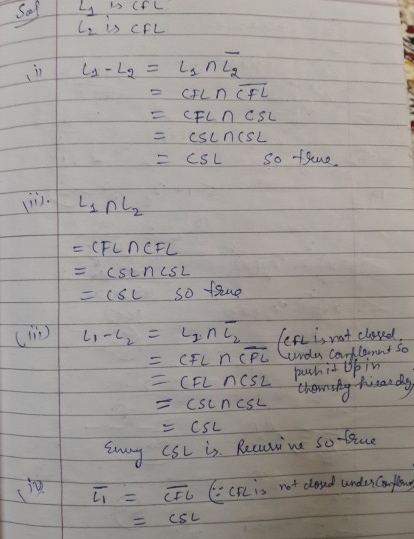 Sol L₁ is CFL
L₂ is CFL
(i) L₁ - L₂ = L₁ ∩ L̅₂
= CFL ∩ C̅F̅L̅
= CFL ∩ CSL
= CSL ∩ CSL
= CSL so true.
(ii). L₁ ∩ L₂
= CFL ∩ CFL
= CSL ∩ CSL
= CSL so true
(iii) L₁ - L₂ = L₁ ∩ L̅₂ (CFL is not closed
= CFL ∩ C̅F̅L̅ under complemnt so
push it up in
= CFL ∩ CSL chomsky hierarchy)
= CSL ∩ CSL
= CSL
Every CSL is Recursive so true
(iv) L̅₁ = C̅F̅L̅ (∵ CFL is not closed under Complem
= CSL